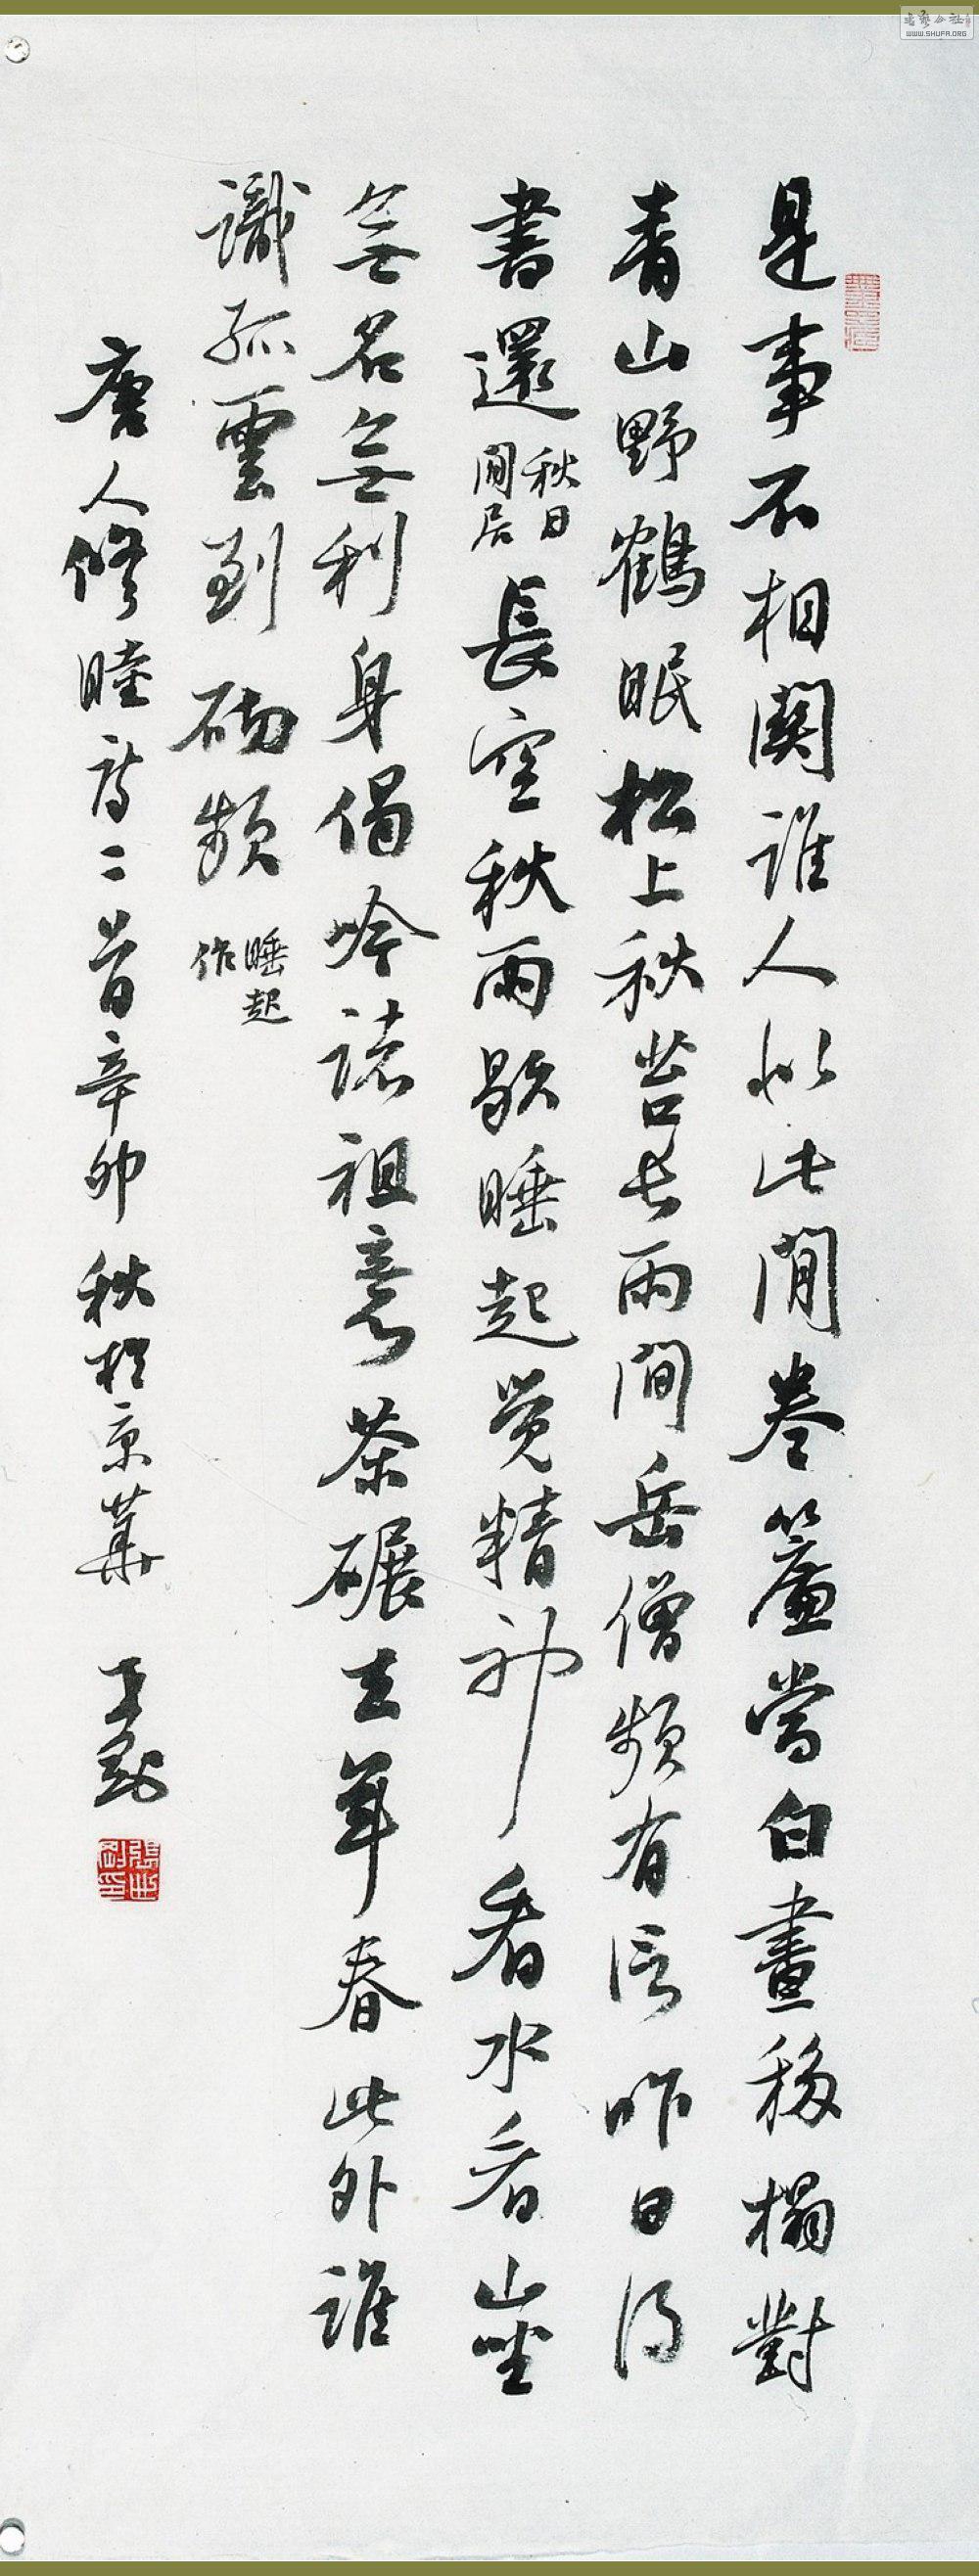 是事不相關誰人似此閒卷簾當白晝移榻對
青山野鶴眠松上秋苔長雨間岳僧頻有信昨日得
書還 秋日閒居 長空秋雨歇睡起覺精神看水看山坐
無名無利身偈吟諸祖意茶碾去年春此外誰
識孤雲到砌頻 睡起作
唐人修睦詩二首辛卯秋於京華
WWW.SHUFA.ORG